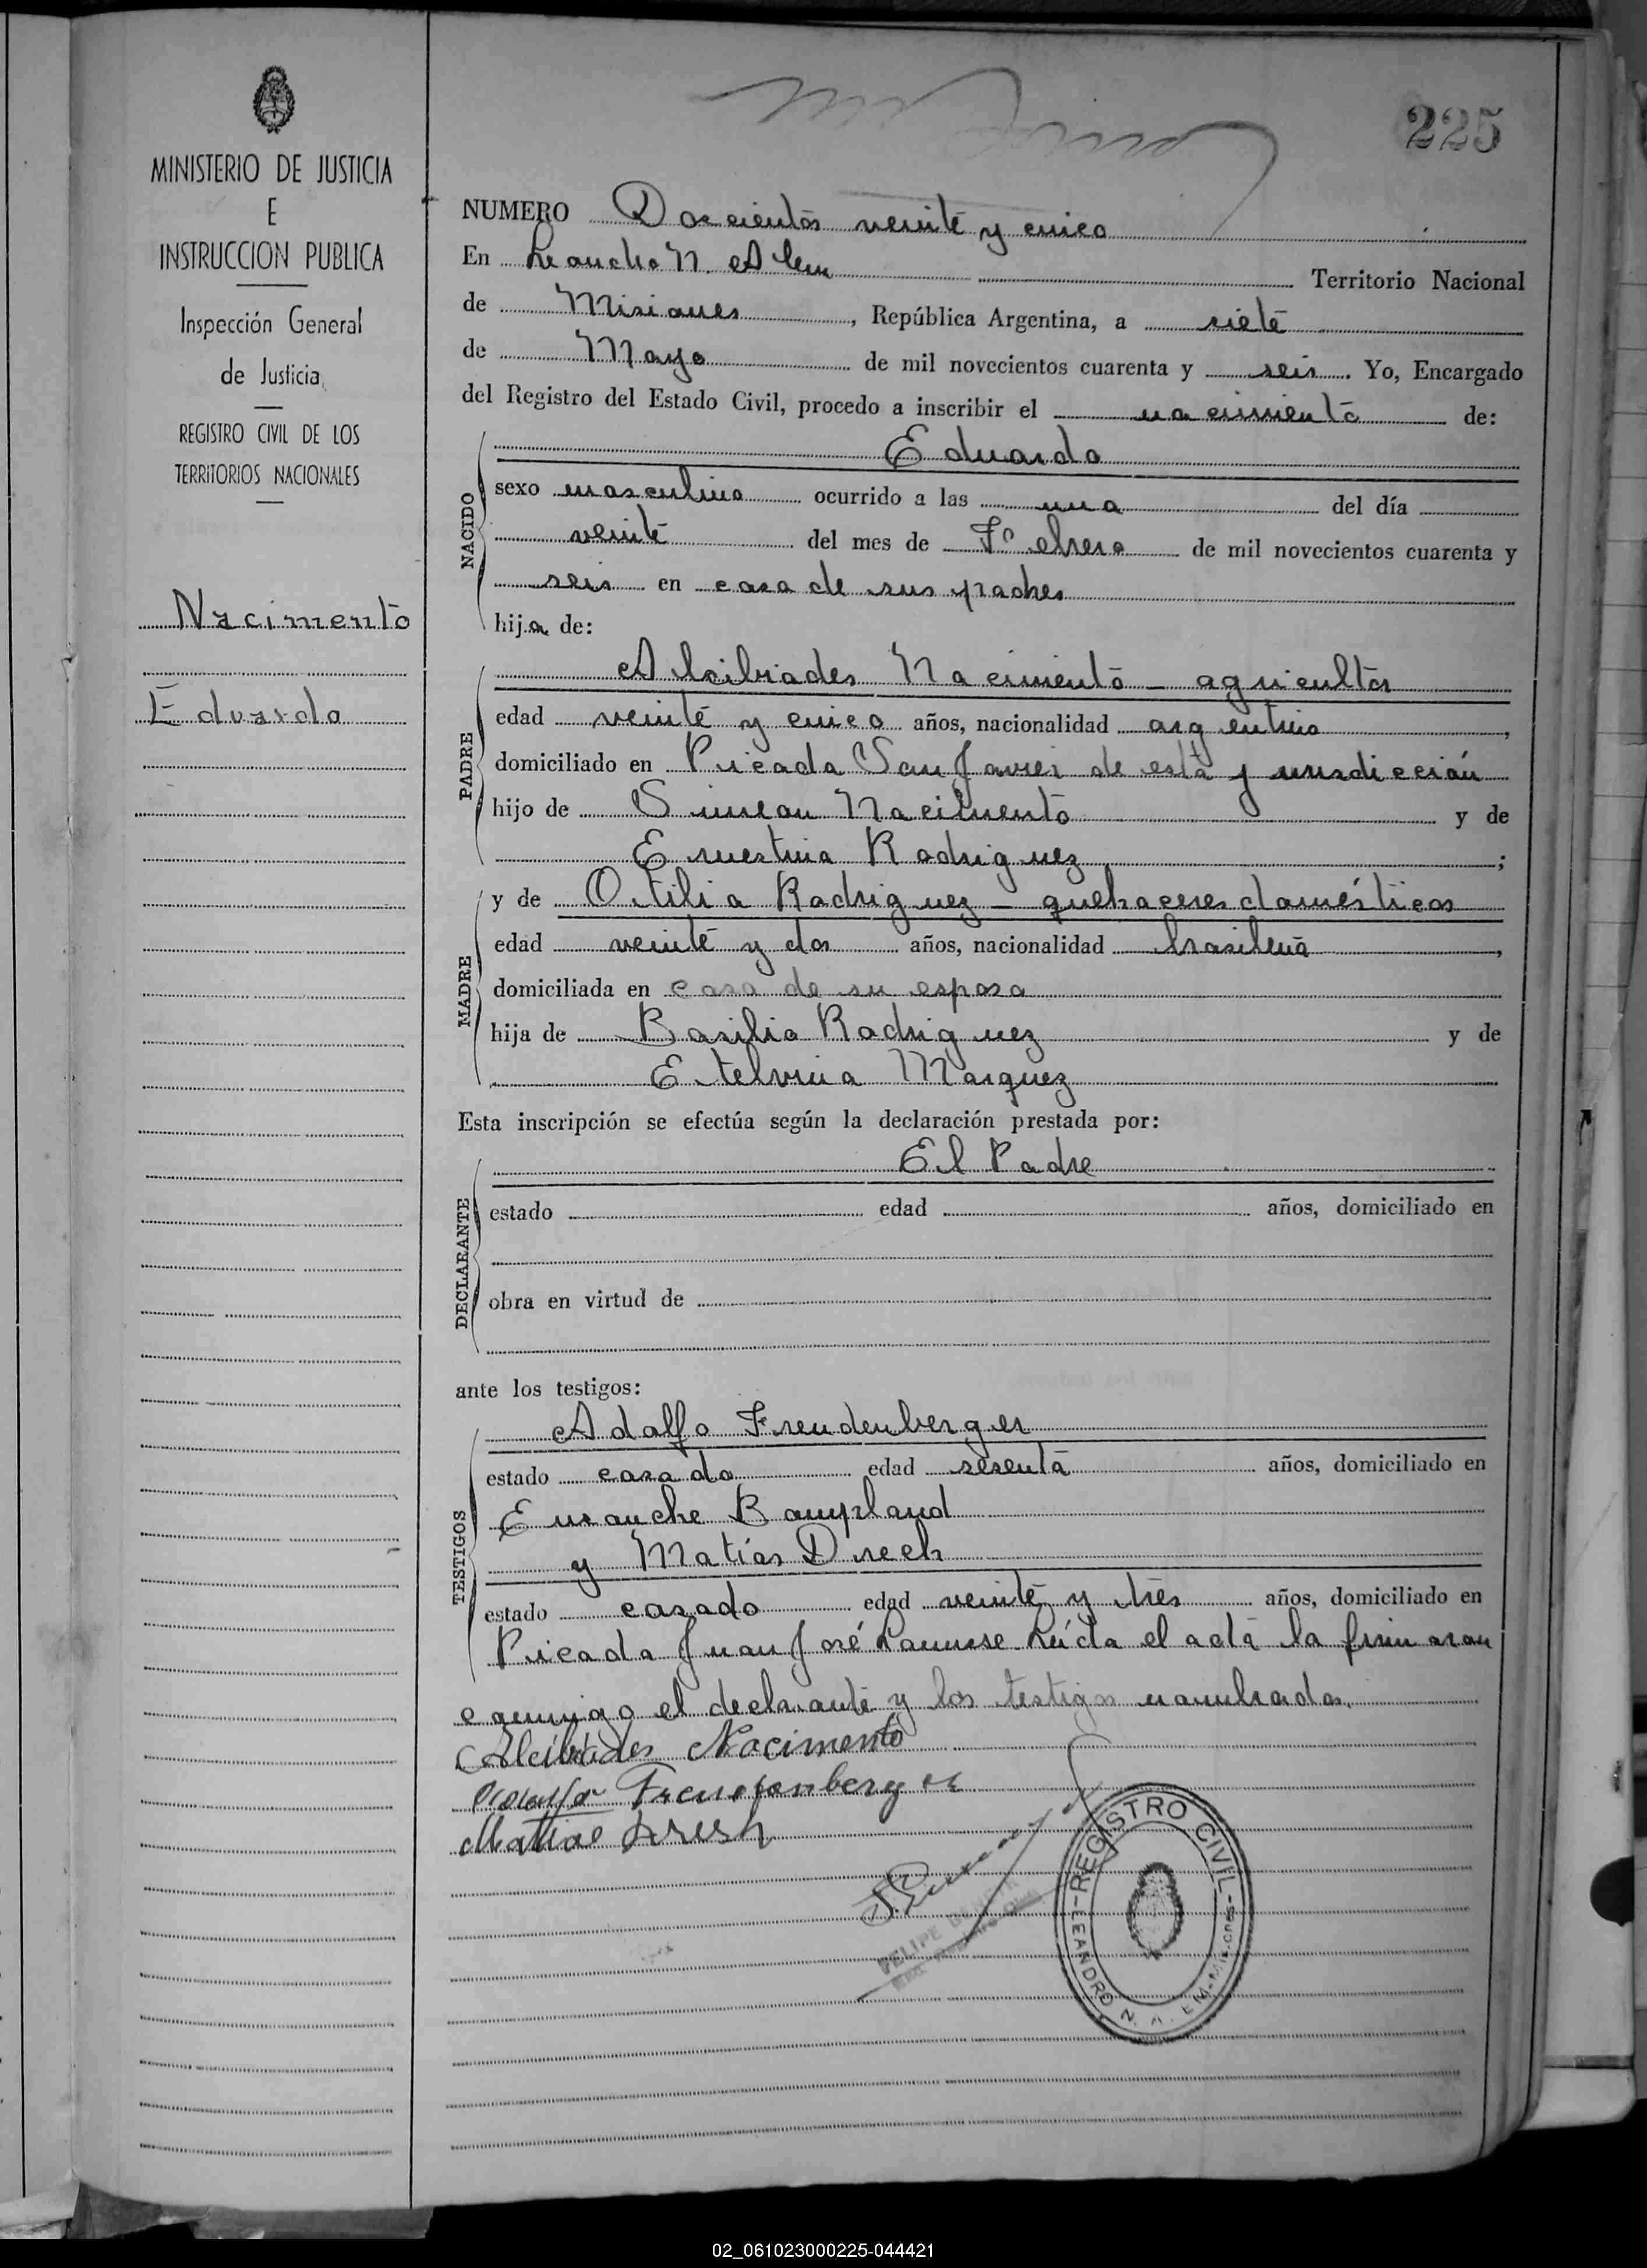 225
MINISTERIO DE JUSTICIA
E
INSTRUCCION PUBLICA
Inspección General
de Justicia
REGISTRO CIVIL DE LOS
TERRITORIOS NACIONALES
Nacimento
Eduardo
NUMERO Doscientos veinte y cinco
En Leandro N. Alem Territorio Nacional
de Misiones, República Argentina, a siete
de Mayo de mil novecientos cuarenta y seis. Yo, Encargado
del Registro del Estado Civil, procedo a inscribir el nacimiento de:
NACIDO
Eduardo
sexo masculino ocurrido a las una del día
veinte del mes de Febrero de mil novecientos cuarenta y
seis en casa de sus padres
hijo de:
PADRE
Alcibiades Nacimento - agricultor
edad veinte y cinco años, nacionalidad argentino,
domiciliado en Picada San Javier de esta jurisdicción
hijo de Simeon Nacimento y de
Ernestina Rodriguez;
MADRE
y de Otilia Rodriguez - quehaceres domésticos
edad veinte y dos años, nacionalidad brasileña,
domiciliada en casa de su esposo
hija de Basilio Rodriguez y de
Etelvina Marquez
Esta inscripción se efectúa según la declaración prestada por:
DECLARANTE
El Padre
estado edad años, domiciliado en
obra en virtud de
ante los testigos:
TESTIGOS
Adolfo Freudenberger
estado casado edad sesenta años, domiciliado en
Ensanche Bompland
y Matías Drech
estado casado edad veinte y tres años, domiciliado en
Picada Juan José Lanusse Leída el acta la firmaron
conmigo el declarante y los testigos nombrados.
Alcibiades Nacimento
Adolfo Freudenberger
Matias Dresh
FELIPE
REGISTRO CIVIL
LEANDRO N. ALEM - Misiones
02_061023000225-044421